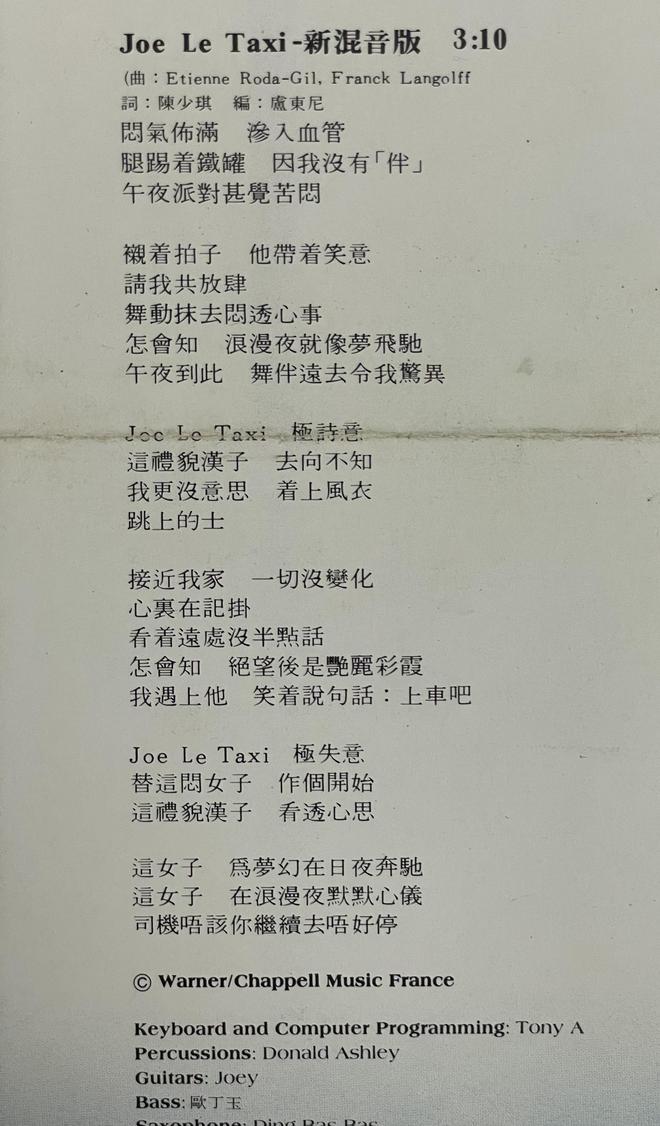 Joe Le Taxi-新混音版 3:10
(曲：Etienne Roda-Gil, Franck Langolff
詞：陳少琪 編：盧東尼
悶氣佈滿 滲入血管
腿踢着鐵罐 因我沒有「伴」
午夜派對甚覺苦悶
襯着拍子 他帶着笑意
請我共放肆
舞動抹去悶透心事
怎會知 浪漫夜就像夢飛馳
午夜到此 舞伴遠去令我驚異
Joe Le Taxi 極詩意
這禮貌漢子 去向不知
我更沒意思 着上風衣
跳上的士
接近我家 一切沒變化
心裏在記掛
看着遠處沒半點話
怎會知 絕望後是艷麗彩霞
我遇上他 笑着說句話：上車吧
Joe Le Taxi 極失意
替這悶女子 作個開始
這禮貌漢子 看透心思
這女子 爲夢幻在日夜奔馳
這女子 在浪漫夜默默心儀
司機唔該你繼續去唔好停
© Warner/Chappell Music France
Keyboard and Computer Programming: Tony A
Percussions: Donald Ashley
Guitars: Joey
Bass: 歐丁玉
Saxophone: Ding Bas Bas